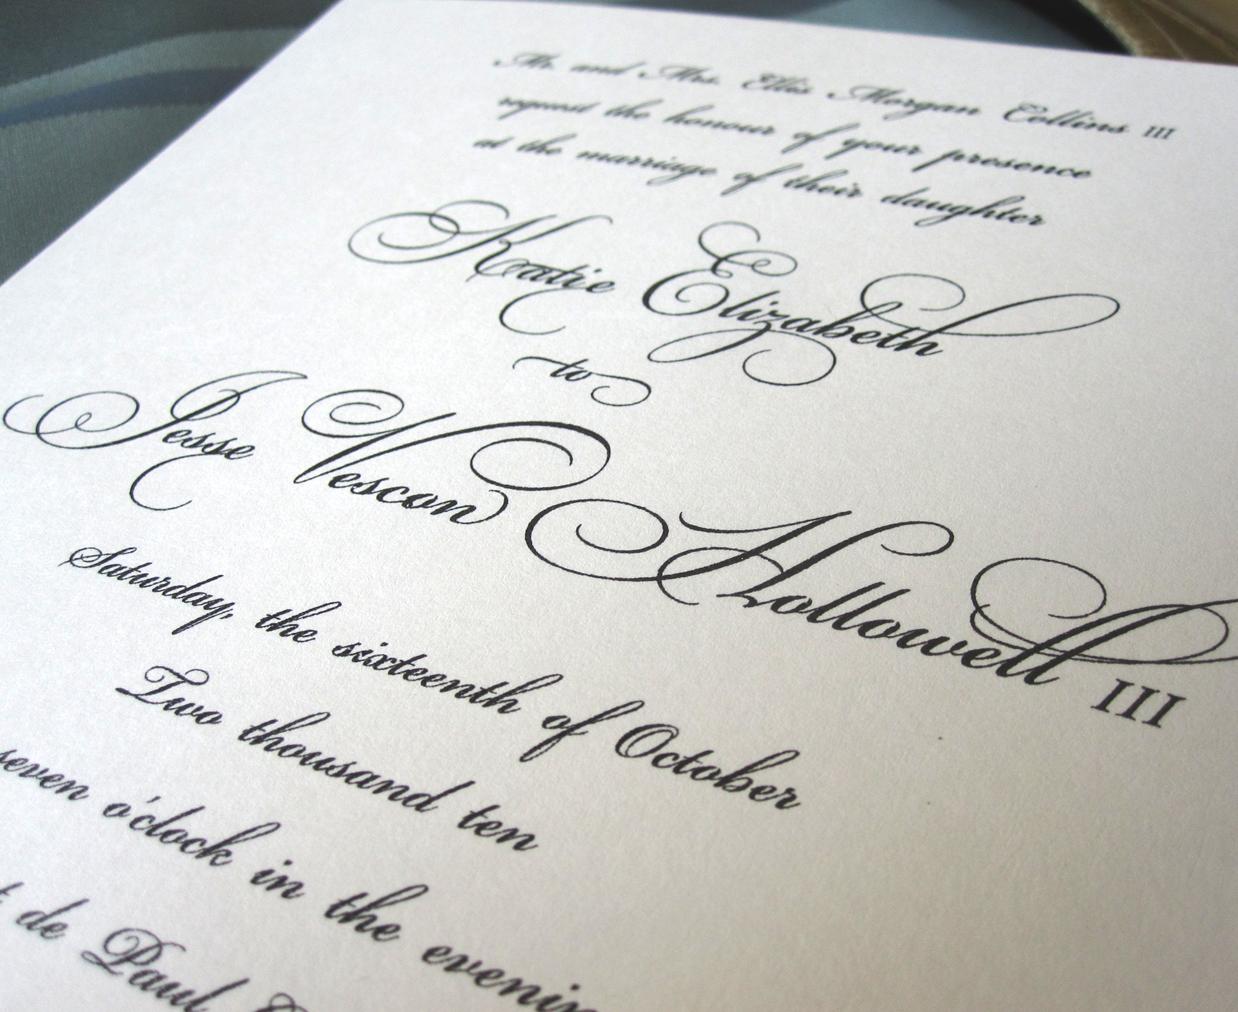 Mr. and Mrs. Ellis Morgan Collins III
request the honour of your presence
at the marriage of their daughter
Katie Elizabeth
to
Jesse Vescon Hollowell III
Saturday, the sixteenth of October
Two thousand ten
seven o'clock in the evenin
t de Paul